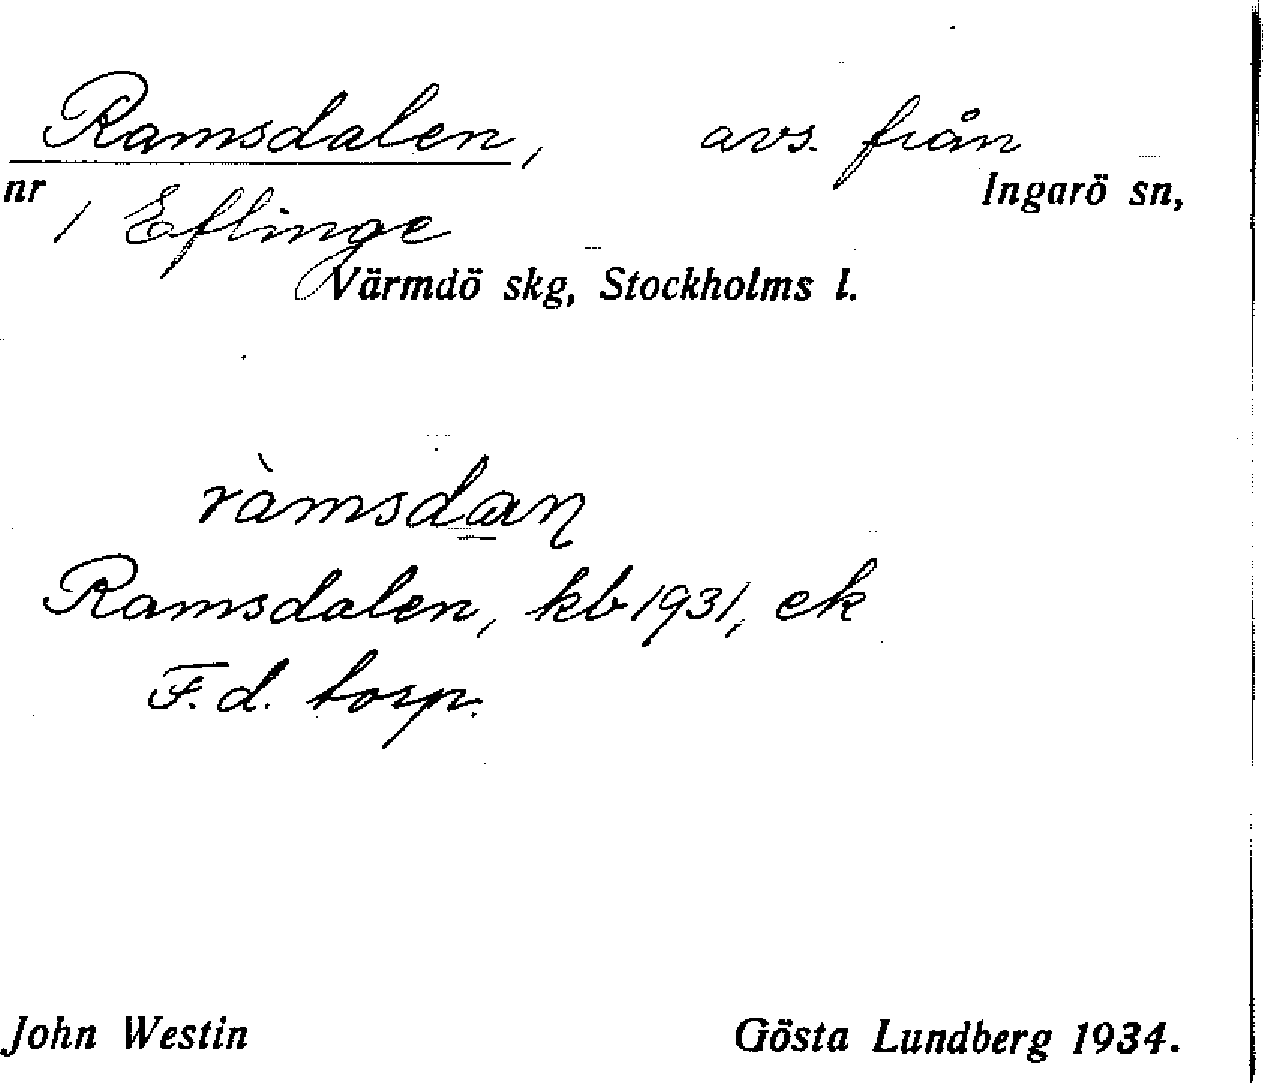 Ramsdalen, avs. från
nr 1 Eflinge Ingarö sn,
Värmdö skg, Stockholms l.
ràmsdan
Ramsdalen, kb 1931, ek
F.d. torp.
John Westin Gösta Lundberg 1934.